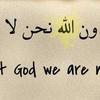 ون الله نحن لا
t God we are n